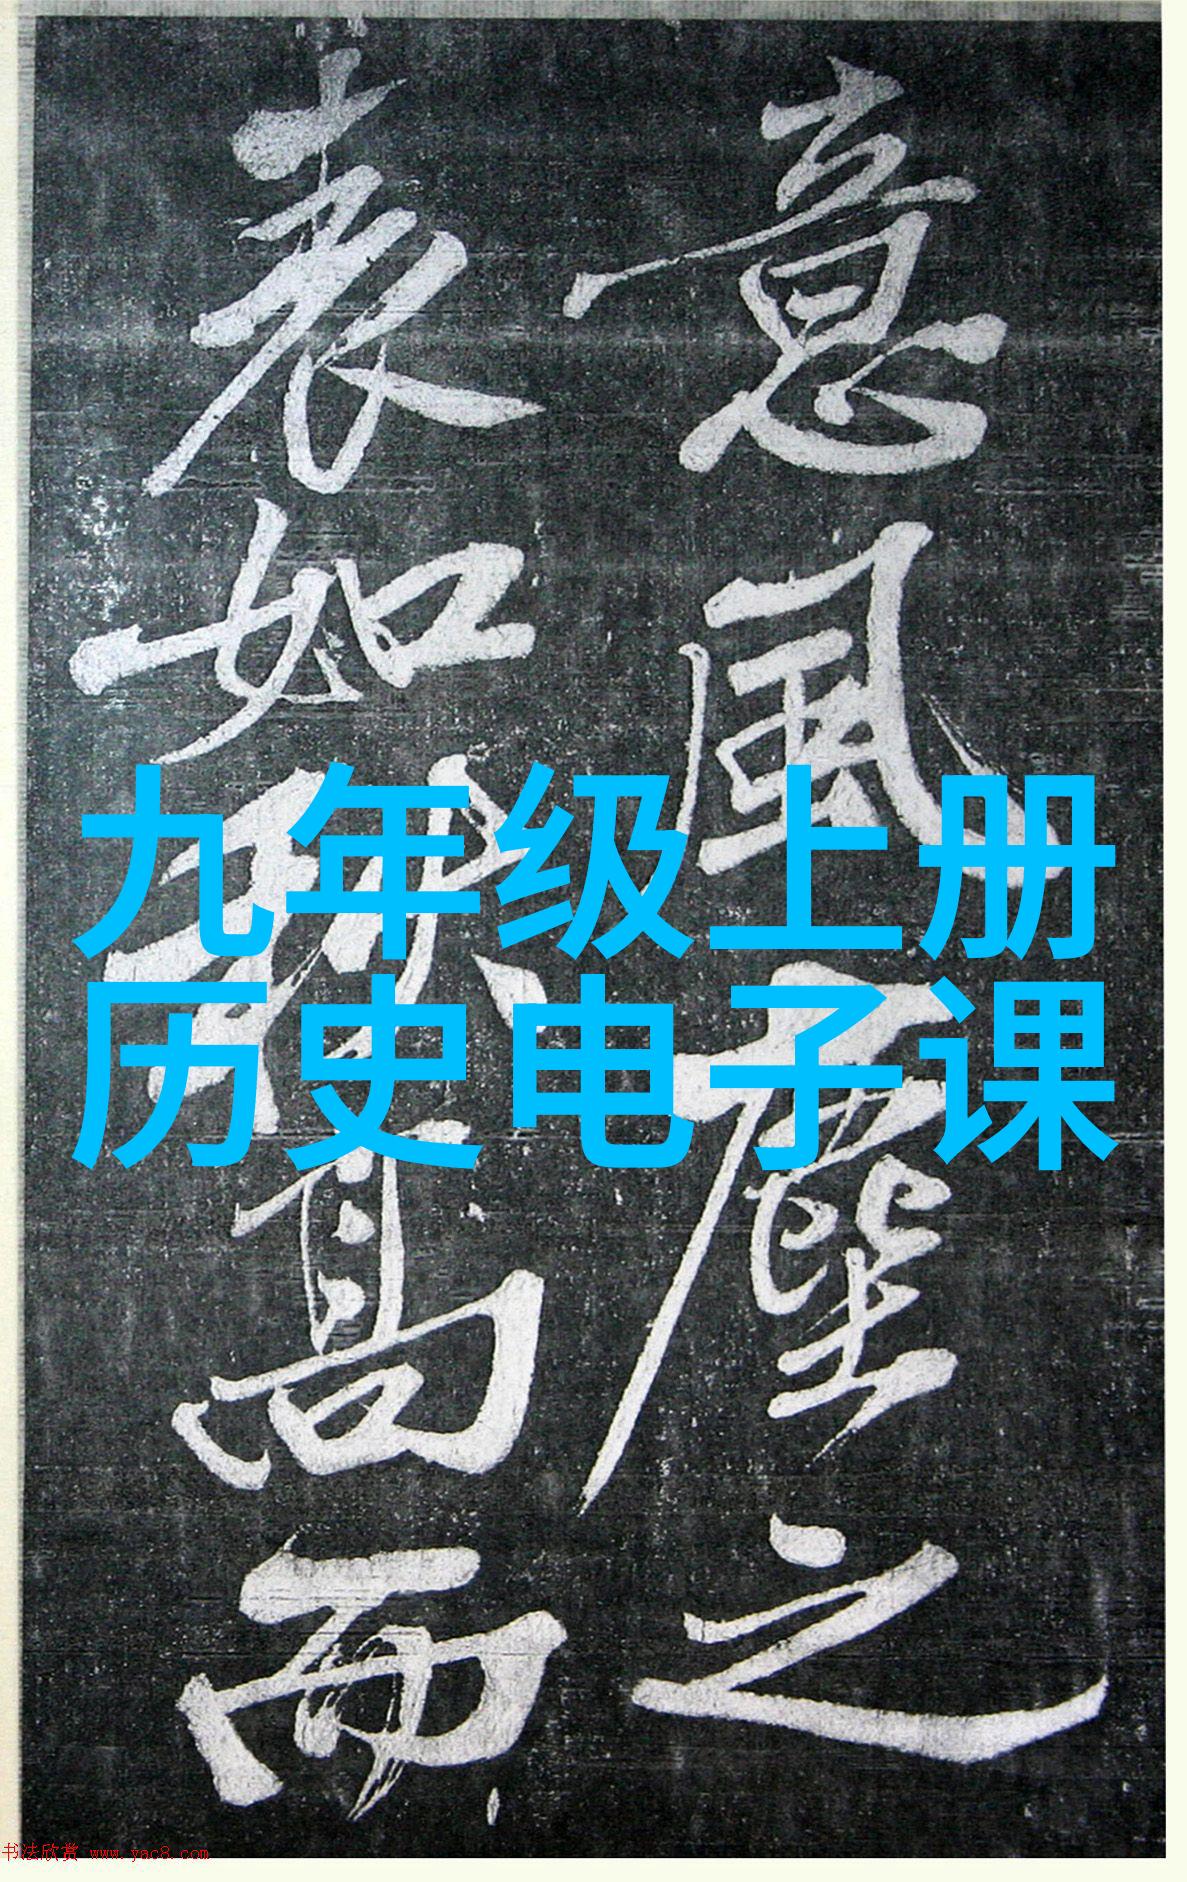 意風塵之
表如
高而
九年级上册
历史电子课
书法欣赏 www.yac8.com